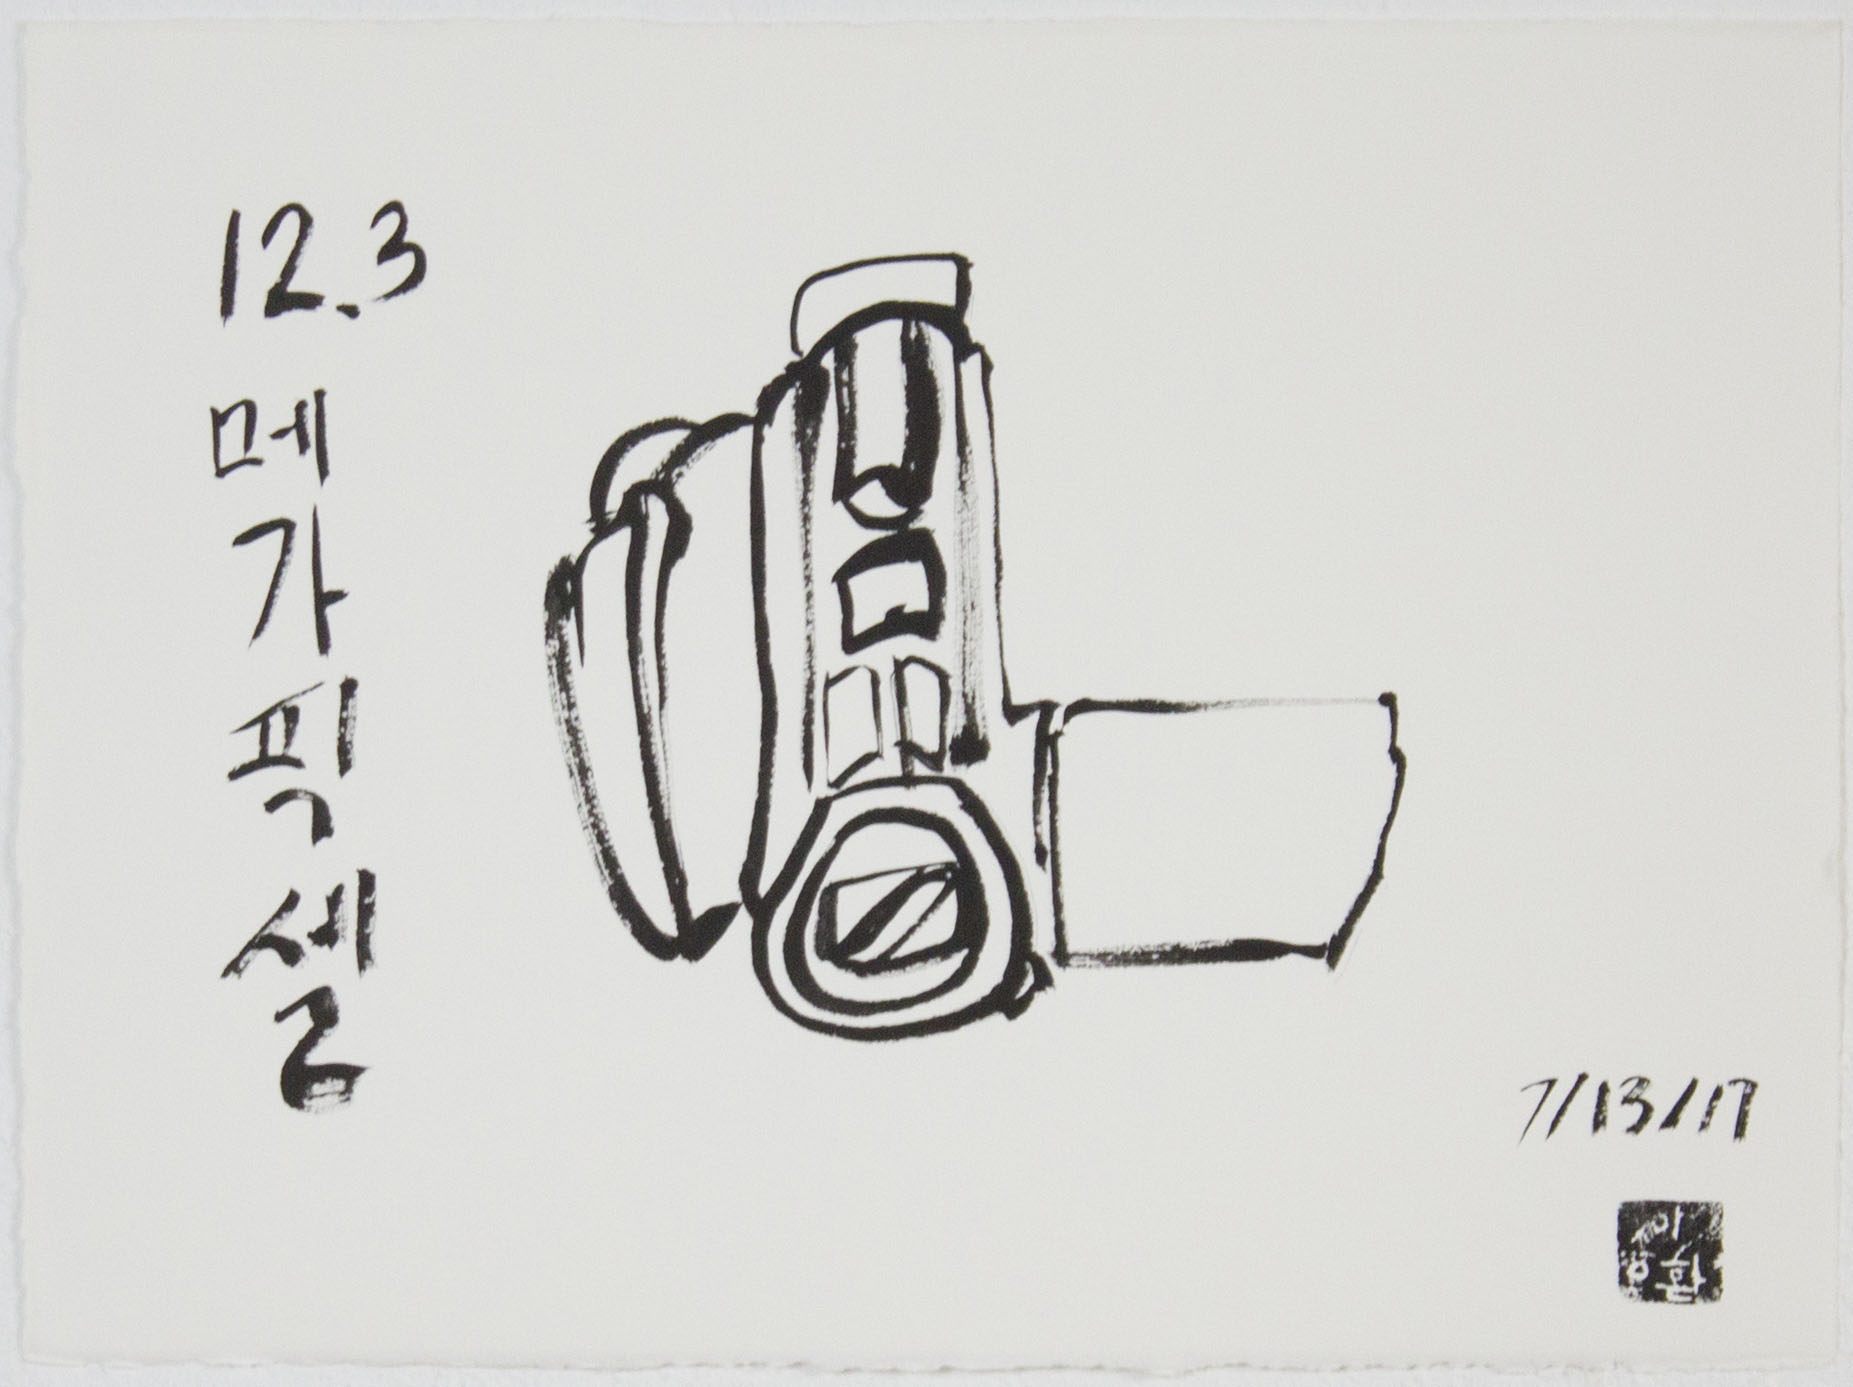 12.3
메
가
픽
셀
7/13/17